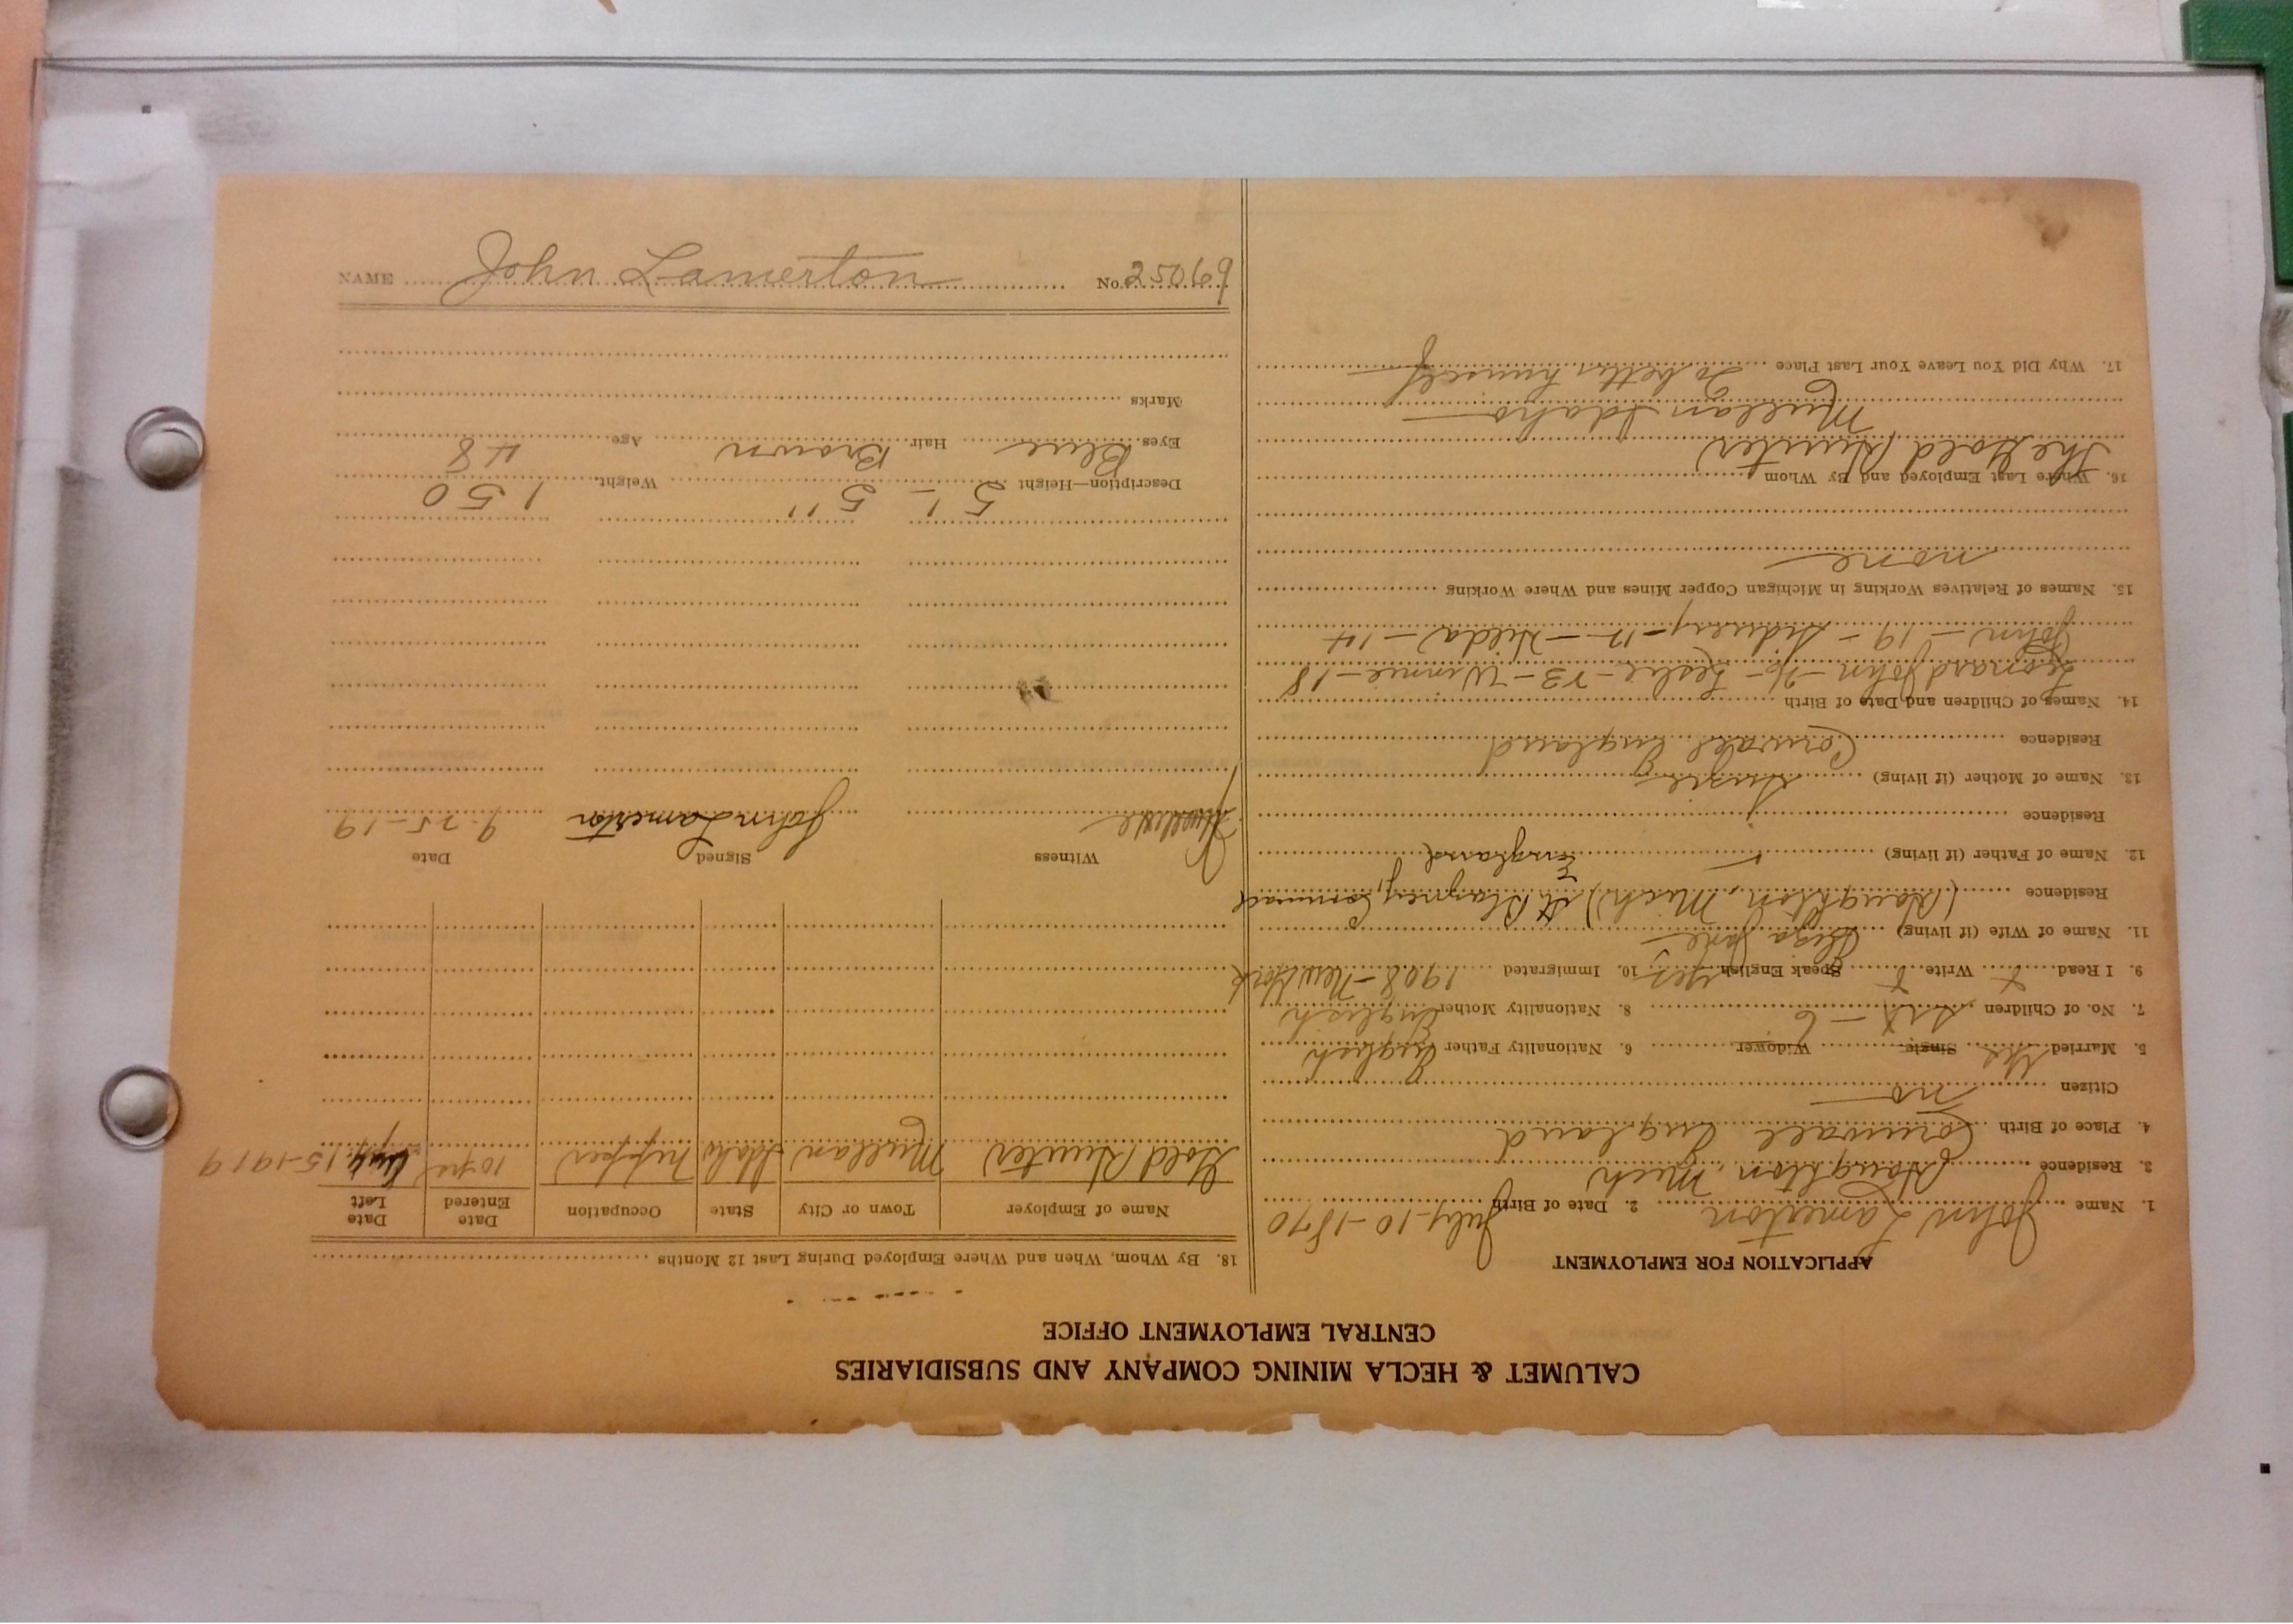 CALUMET & HECLA MINING COMPANY AND SUBSIDIARIES
CENTRAL EMPLOYMENT OFFICE
APPLICATION FOR EMPLOYMENT
1. Name John Lamerton 2. Date of Birth July-10-1870
3. Residence Houghton, Mich
4. Place of Birth Cornwall England
Citizen no
5. Married Yes Single Widower 6. Nationality Father English
7. No. of Children Six-6 8. Nationality Mother English
9. I Read x Write x Speak English yes 10. Immigrated 1908-New York
11. Name of Wife (if living) Eliza Jane
Residence (Houghton, Mich) St Blazney, Cornwall
England
12. Name of Father (if living)
Residence
13. Name of Mother (if living) Susie
Residence Cornwall England
14. Names of Children and Date of Birth
Leonard John-26-Leslie-23-Winnie-18
John-19-Sidney-12-Hilda-14
15. Names of Relatives Working in Michigan Copper Mines and Where Working
none
16. Where Last Employed and By Whom
The Gold Hunter
Mullan Idaho
17. Why Did You Leave Your Last Place To better himself
18. By Whom, When and Where Employed During Last 12 Months
Name of Employer Town or City State Occupation Date Entered Date Left
Gold Hunter Mullan Idaho Nipper 10 yr Sept 15-1919
Witness Signed Date
John Lamerton 9-25-19
Description—Height 5' - 5" Weight 150
Eyes Blue Hair Brown Age 48
Marks
NAME John Lamerton No. 25069